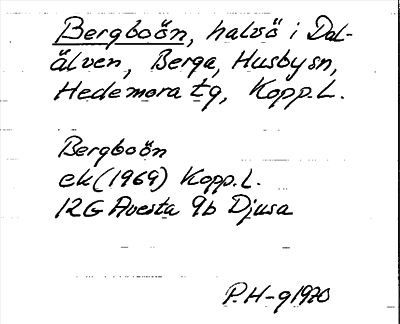 Bergboön, halvö i Dal-
älven, Berga, Husby sn,
Hedemora tg, Kopp.L.
Bergboön
ek (1969) Kopp.L.
12G Avesta 9b Djusa
P.H-g 1970